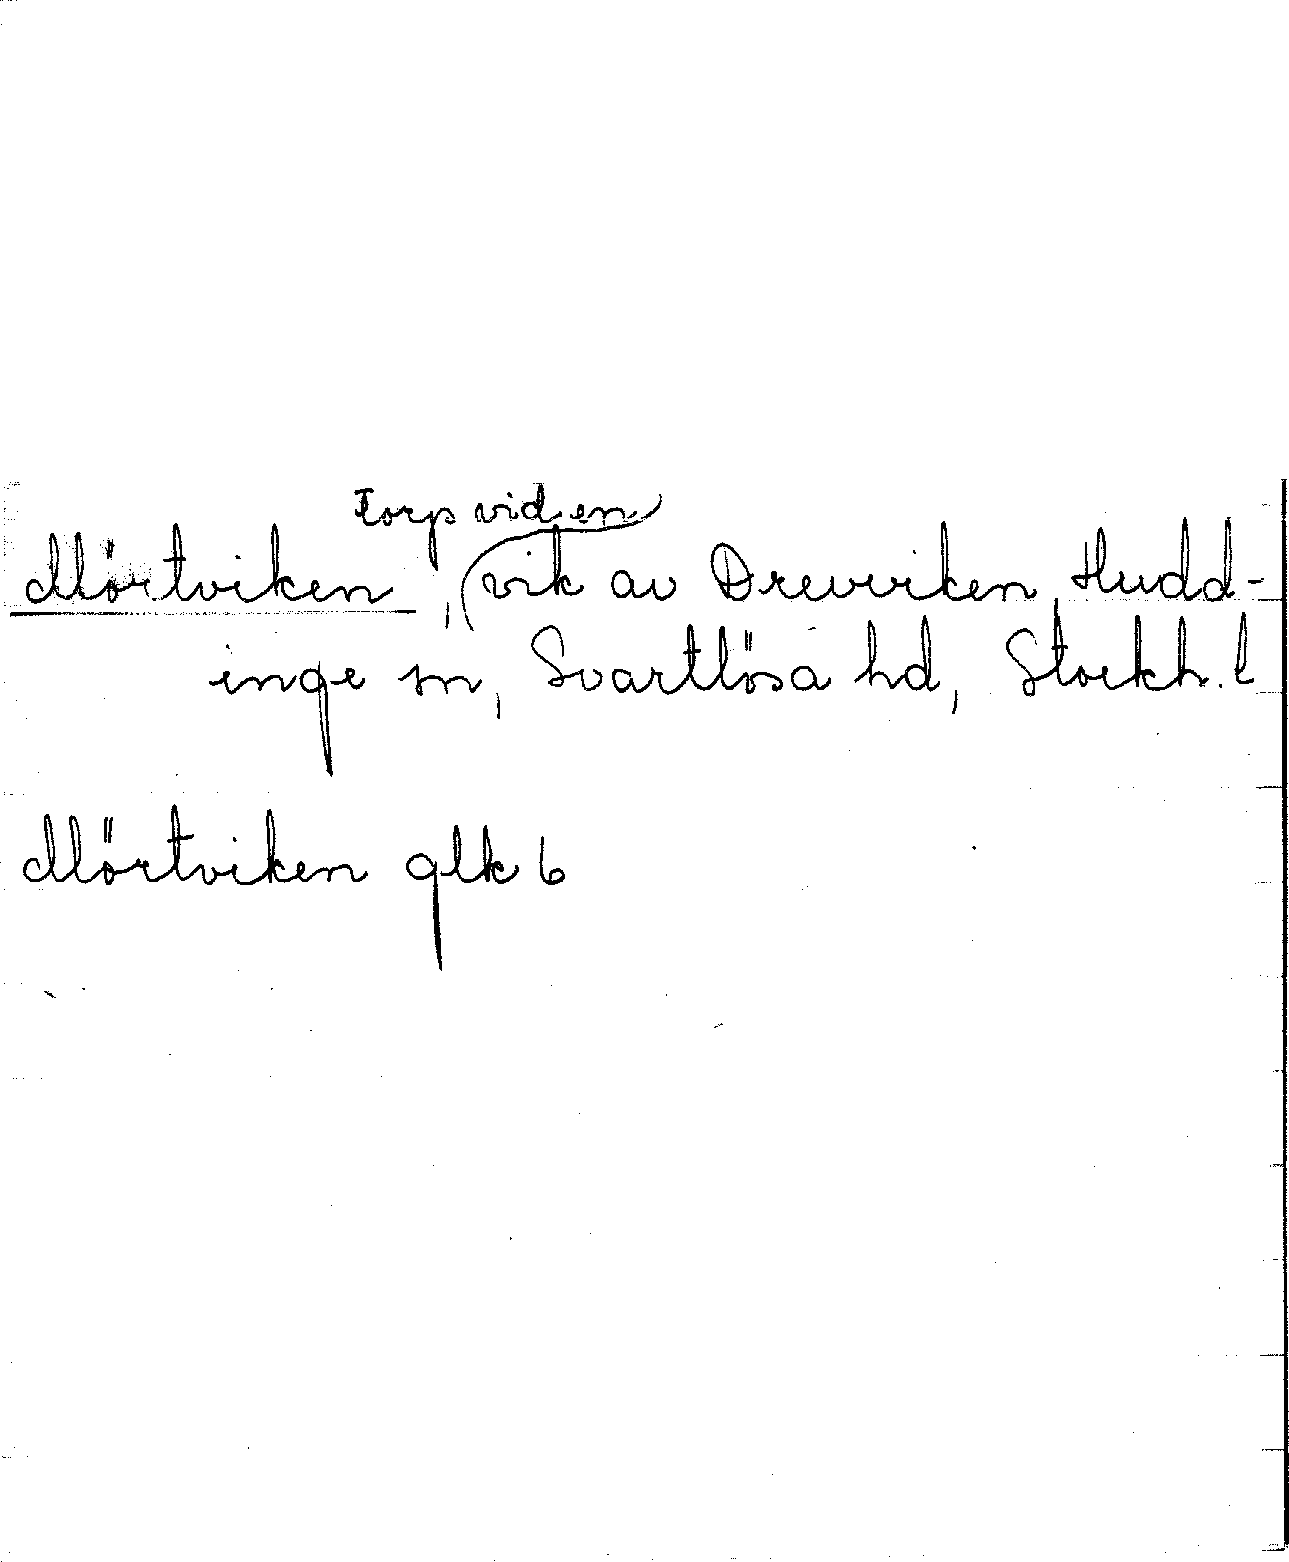 Torp vid en
Mörtviken, vik av Drevviken, Hudd-
inge sn, Svartlösa hd, Stockh. l
Mörtviken glk 6